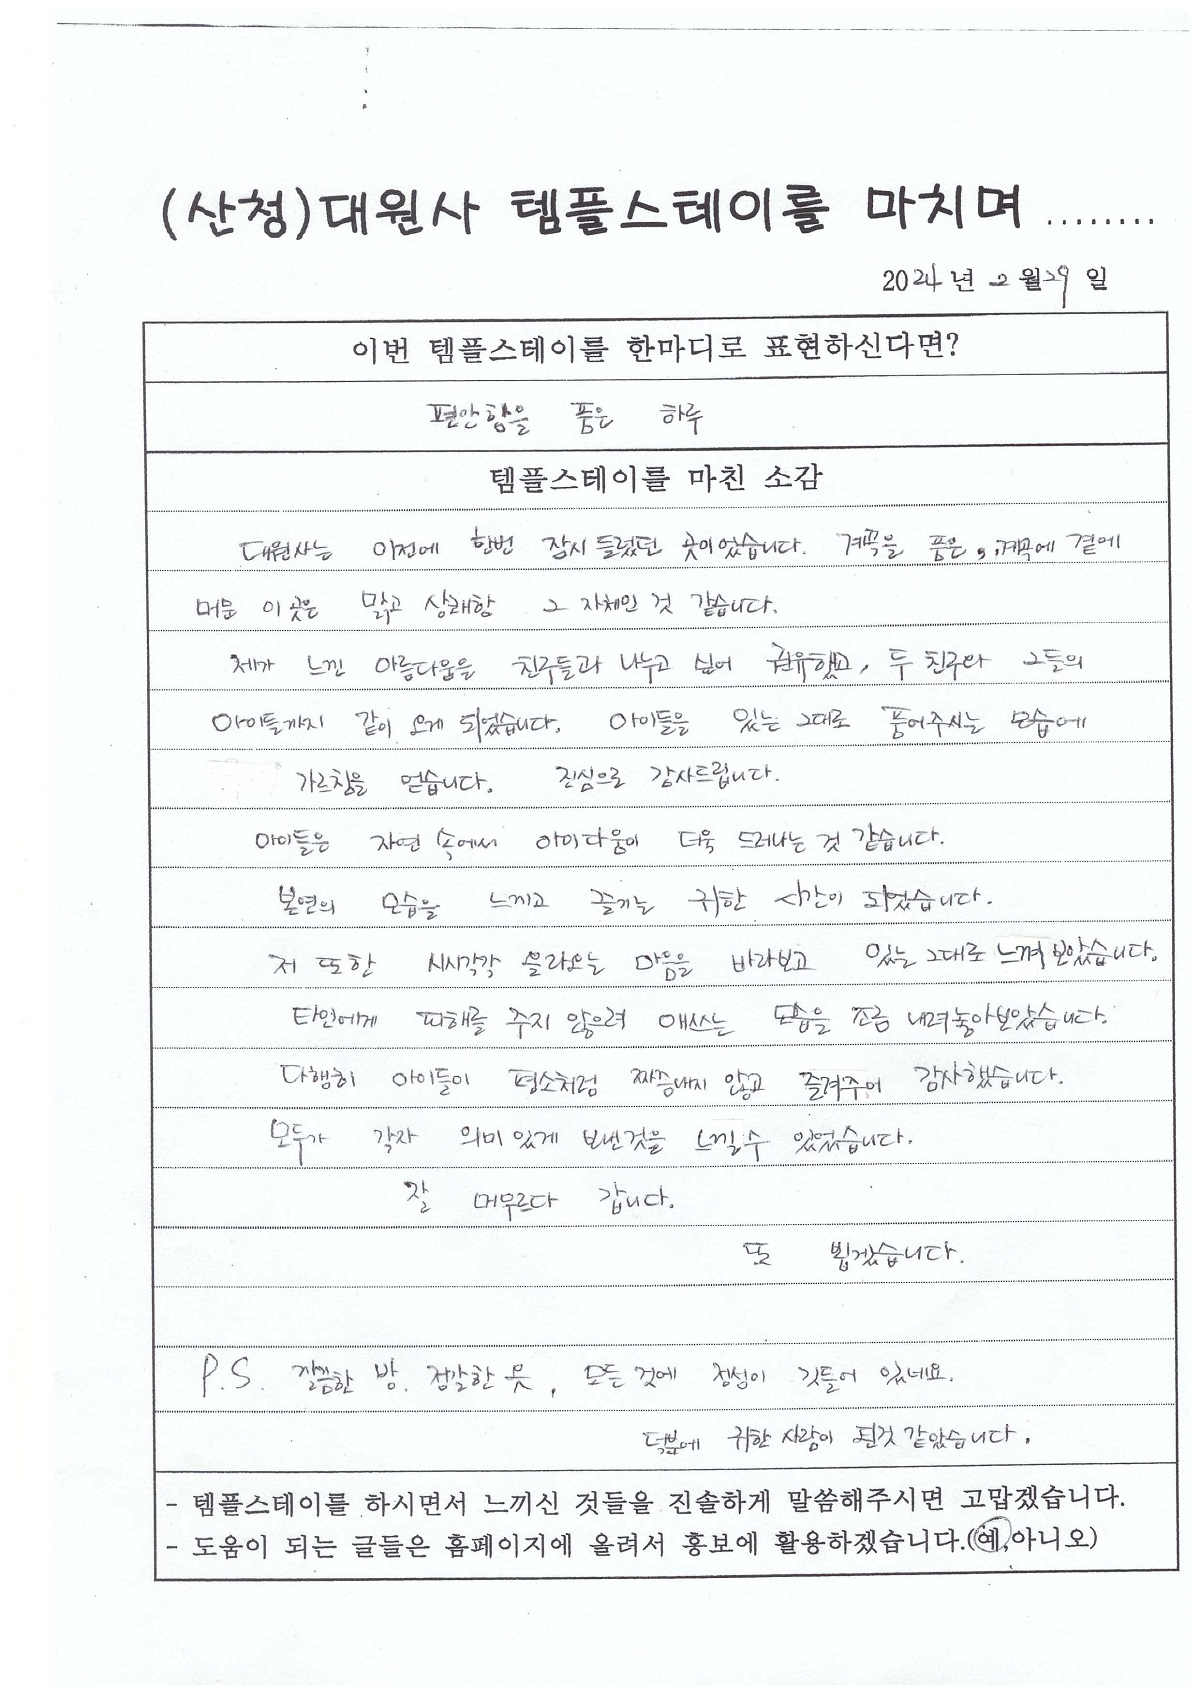 (산청)대원사 템플스테이를 마치며........
2024년 2월29일
이번 템플스테이를 한마디로 표현하신다면?
편안함을 품은 하루
템플스테이를 마친 소감
대원사는 이전에 한번 잠시 들렀던 곳이었습니다. 계곡을 품은, 계곡에 곁에
머문 이 곳은 맑고 상쾌함 그 자체인 것 같습니다.
제가 느낀 아름다움을 친구들과 나누고 싶어 권유했고, 두 친구와 그들의
아이들까지 같이 오게 되었습니다. 아이들을 있는 그대로 품어주시는 모습에
가르침을 얻습니다. 진심으로 감사드립니다.
아이들은 자연 속에서 아이다움이 더욱 드러나는 것 같습니다.
본연의 모습을 느끼고 즐기는 귀한 시간이 되었습니다.
저 또한 시시각각 올라오는 마음을 바라보고 있는 그대로 느껴 보았습니다.
타인에게 피해를 주지 않으려 애쓰는 모습을 조금 내려놓아보았습니다.
다행히 아이들이 평소처럼 짜증내지 않고 즐겨주어 감사했습니다.
모두가 각자 의미 있게 보낸것을 느낄 수 있었습니다.
잘 머무르다 갑니다.
또 뵙겠습니다.
P.S. 깔끔한 방, 정갈한 옷, 모든 것에 정성이 깃들어 있네요.
덕분에 귀한 사람이 된것 같았습니다.
- 템플스테이를 하시면서 느끼신 것들을 진솔하게 말씀해주시면 고맙겠습니다.
- 도움이 되는 글들은 홈페이지에 올려서 홍보에 활용하겠습니다.(예,아니오)